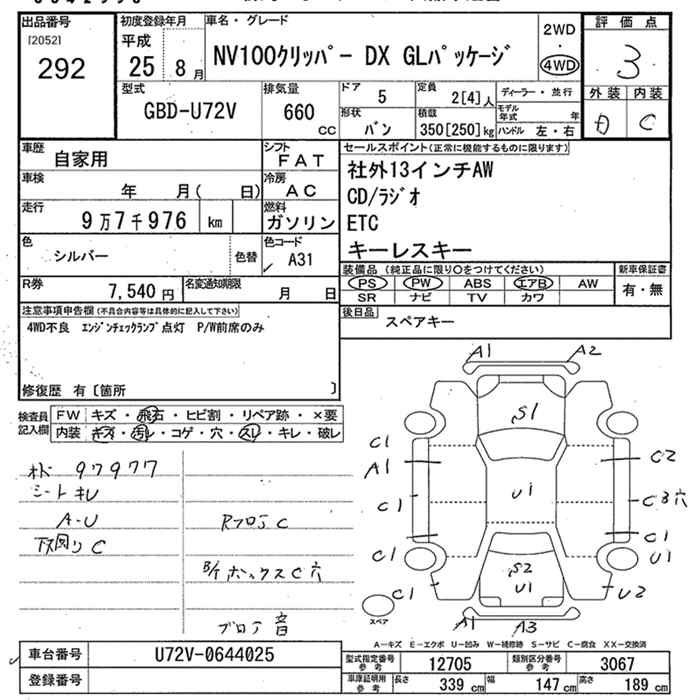 出品番号
[2052]
292
初度登録年月
平成
25 8 月
車名・グレード
NV100クリッパー DX GLパッケージ
2WD
4WD
評価点
3
外装 内装
D C
型式
GBD-U72V
排気量
660 cc
ドア 5
形状 バン
定員 2[4]人
積載 350[250]kg
ディーラー・並行
モデル年式 年
ハンドル 左・右
車歴
自家用
シフト
FAT
車検
年 月( 日)
冷房
AC
走行
9万7千976 km
燃料
ガソリン
色
シルバー
色替
色コード
A31
R券
7,540 円
名変通知期限
月 日
セールスポイント(正常に機能するものに限ります)
社外13インチAW
CD/ラジオ
ETC
キーレスキー
装備品(純正品に限り○をつけてください)
PS PW ABS エアB AW
SR ナビ TV カワ
新車保証書
有・無
後日品
スペアキー
注意事項申告欄(不具合内容等は具体的に記入して下さい)
4WD不良 エンジンチェックランプ点灯 P/W前席のみ
修復歴 有〔箇所 〕
検査員記入欄
FW キズ・飛石・ヒビ割・リペア跡・×要
内装 キズ・汚レ・コゲ・穴・スレ・キレ・破レ
オドー 97977
シートキレ
A-U
下回りC
RフロアC
B/ドボックスC穴
フロア音
A1 A2
S1
C1
A1
C2
C1
U1
C3穴
C1
C1
C1
S2
U1
U1
C1
U2
A1 A3
スペア
A-キズ E-エクボ U-凹み W-補修跡 S-サビ C-腐食 XX-交換済
車台番号
U72V-0644025
登録番号
型式指定番号参考
12705
類別区分番号参考
3067
車庫証明用参考
長さ 339 cm 幅 147 cm 高さ 189 cm